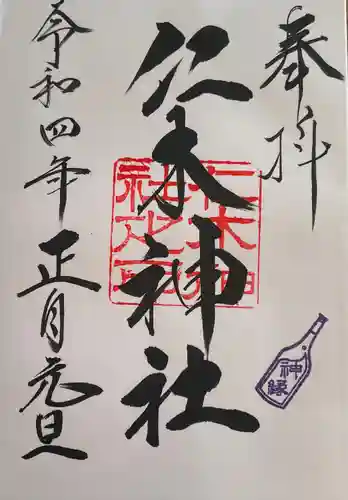 奉拝
仁木神社
仁木神社之印
神縁
令和四年正月元旦